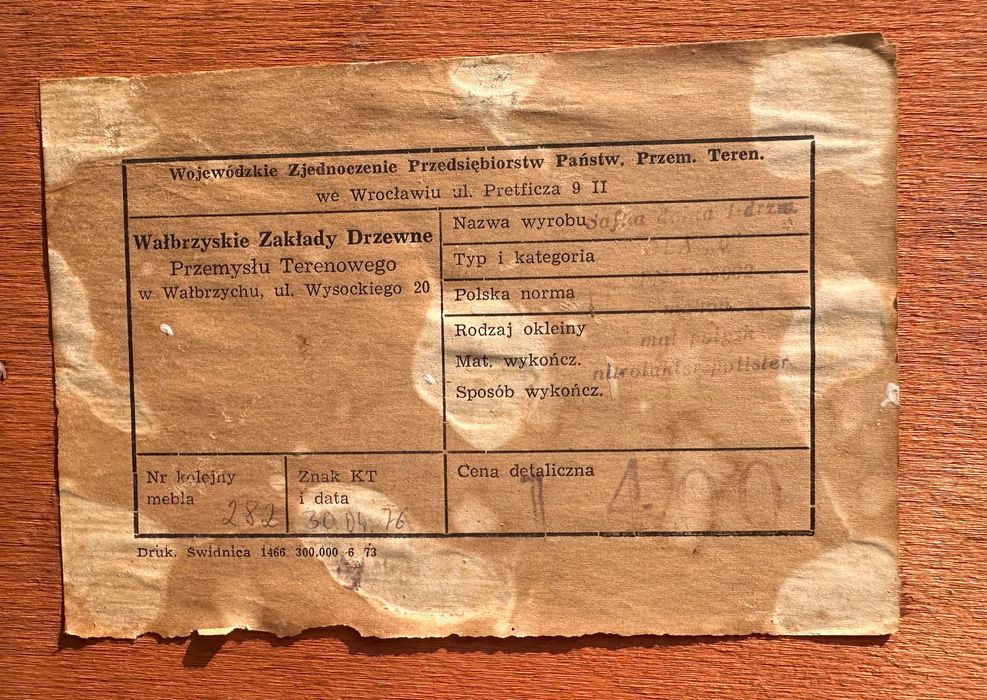 Wojewódzkie Zjednoczenie Przedsiębiorstw Państw. Przem. Teren.
we Wrocławiu ul. Pretficza 9 II
Wałbrzyskie Zakłady Drzewne
Przemysłu Terenowego
w Wałbrzychu, ul. Wysockiego 20
Nazwa wyrobu
Typ i kategoria
Polska norma
Rodzaj okleiny
Mat. wykończ. mat połysk
Sposób wykończ.
Nr kolejny
mebla
282
Znak KT
i data
30.04.76
Cena detaliczna
Druk. Świdnica 1466 300.000 6 73